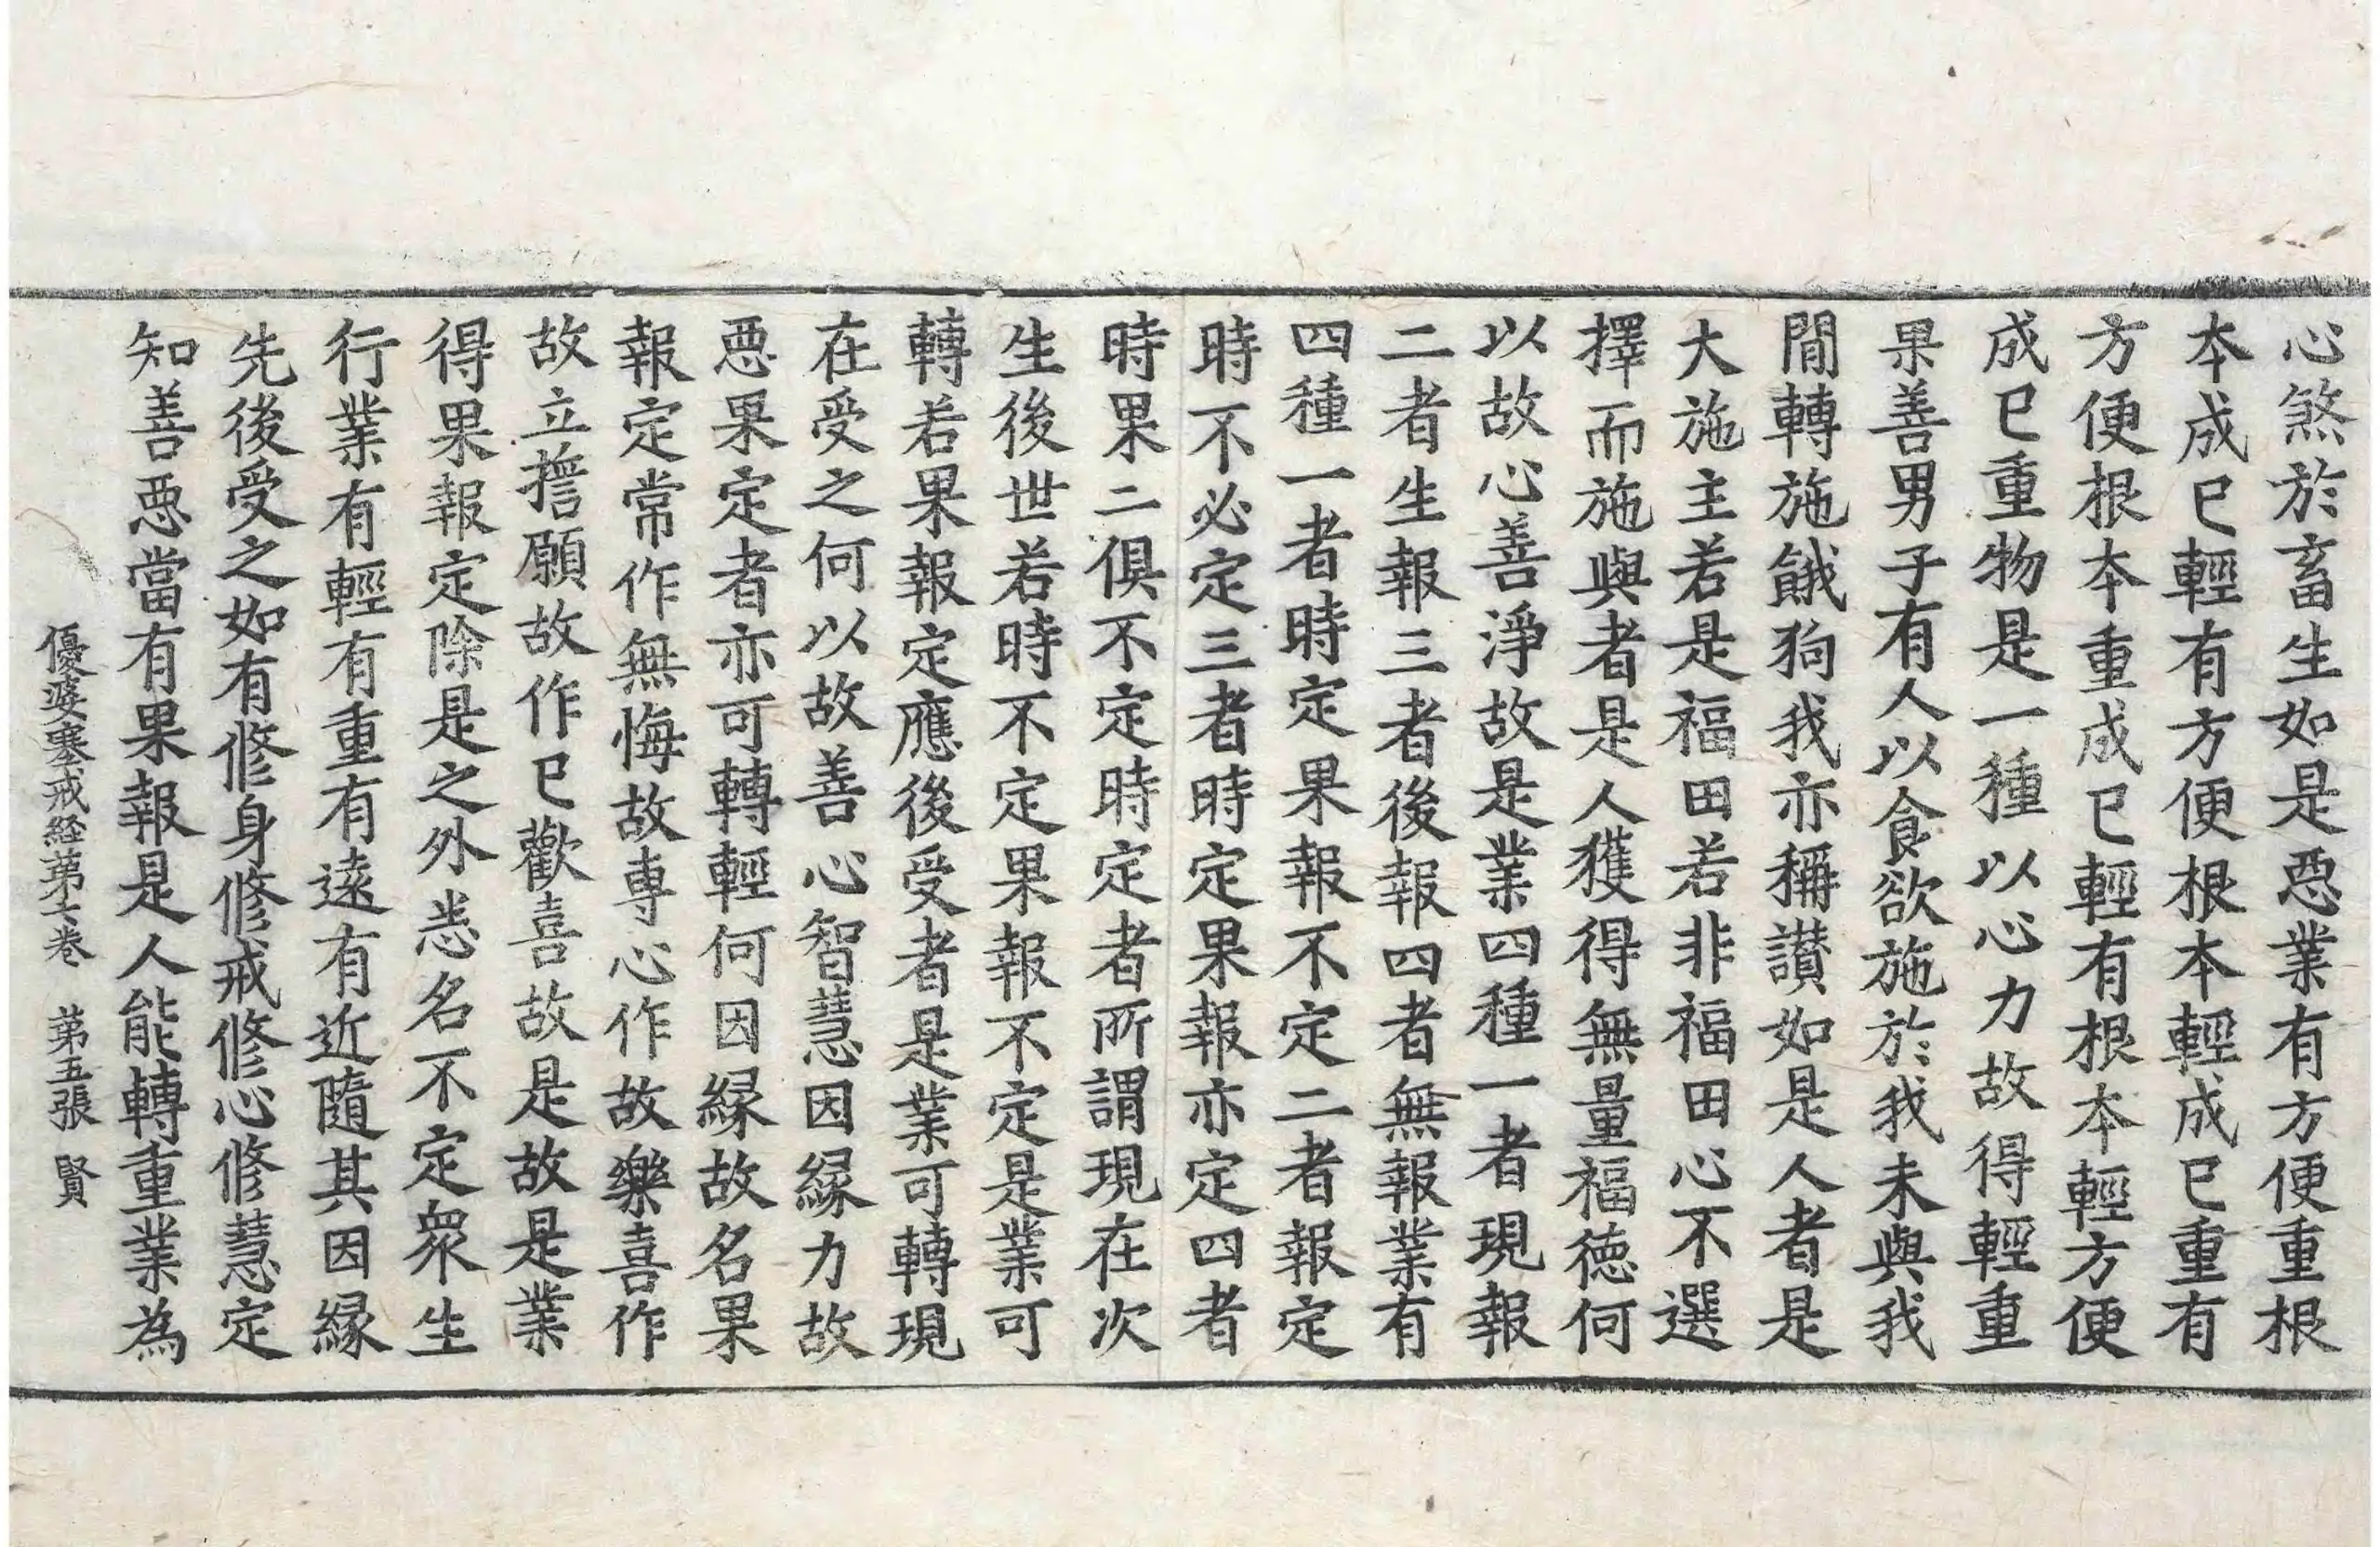 心煞於畜生如是惡業有方便重根
本成已輕有方便根本輕成已重有
方便根本重成已輕有根本輕方便
成已重物是一種以心力故得輕重
果善男子有人以食欲施於我未與我
間轉施餓狗我亦稱讃如是人者是
大施主若是福田若非福田心不選
擇而施與者是人獲得無量福徳何
以故心善淨故是業四種一者現報
二者生報三者後報四者無報業有
四種一者時定果報不定二者報定
時不必定三者時定果報亦定四者
時果二俱不定時定者所謂現在次
生後世若時不定果報不定是業可
轉若果報定應後受者是業可轉現
在受之何以故善心智慧因縁力故
惡果定者亦可轉輕何因縁故名果
報定常作無悔故專心作故樂喜作
故立誓願故作已歡喜故是故是業
得果報定除是之外悉名不定衆生
行業有輕有重有遠有近隨其因縁
先後受之如有修身修戒修心修慧定
知善惡當有果報是人能轉重業為
優婆塞戒経第六卷 第五張 賢